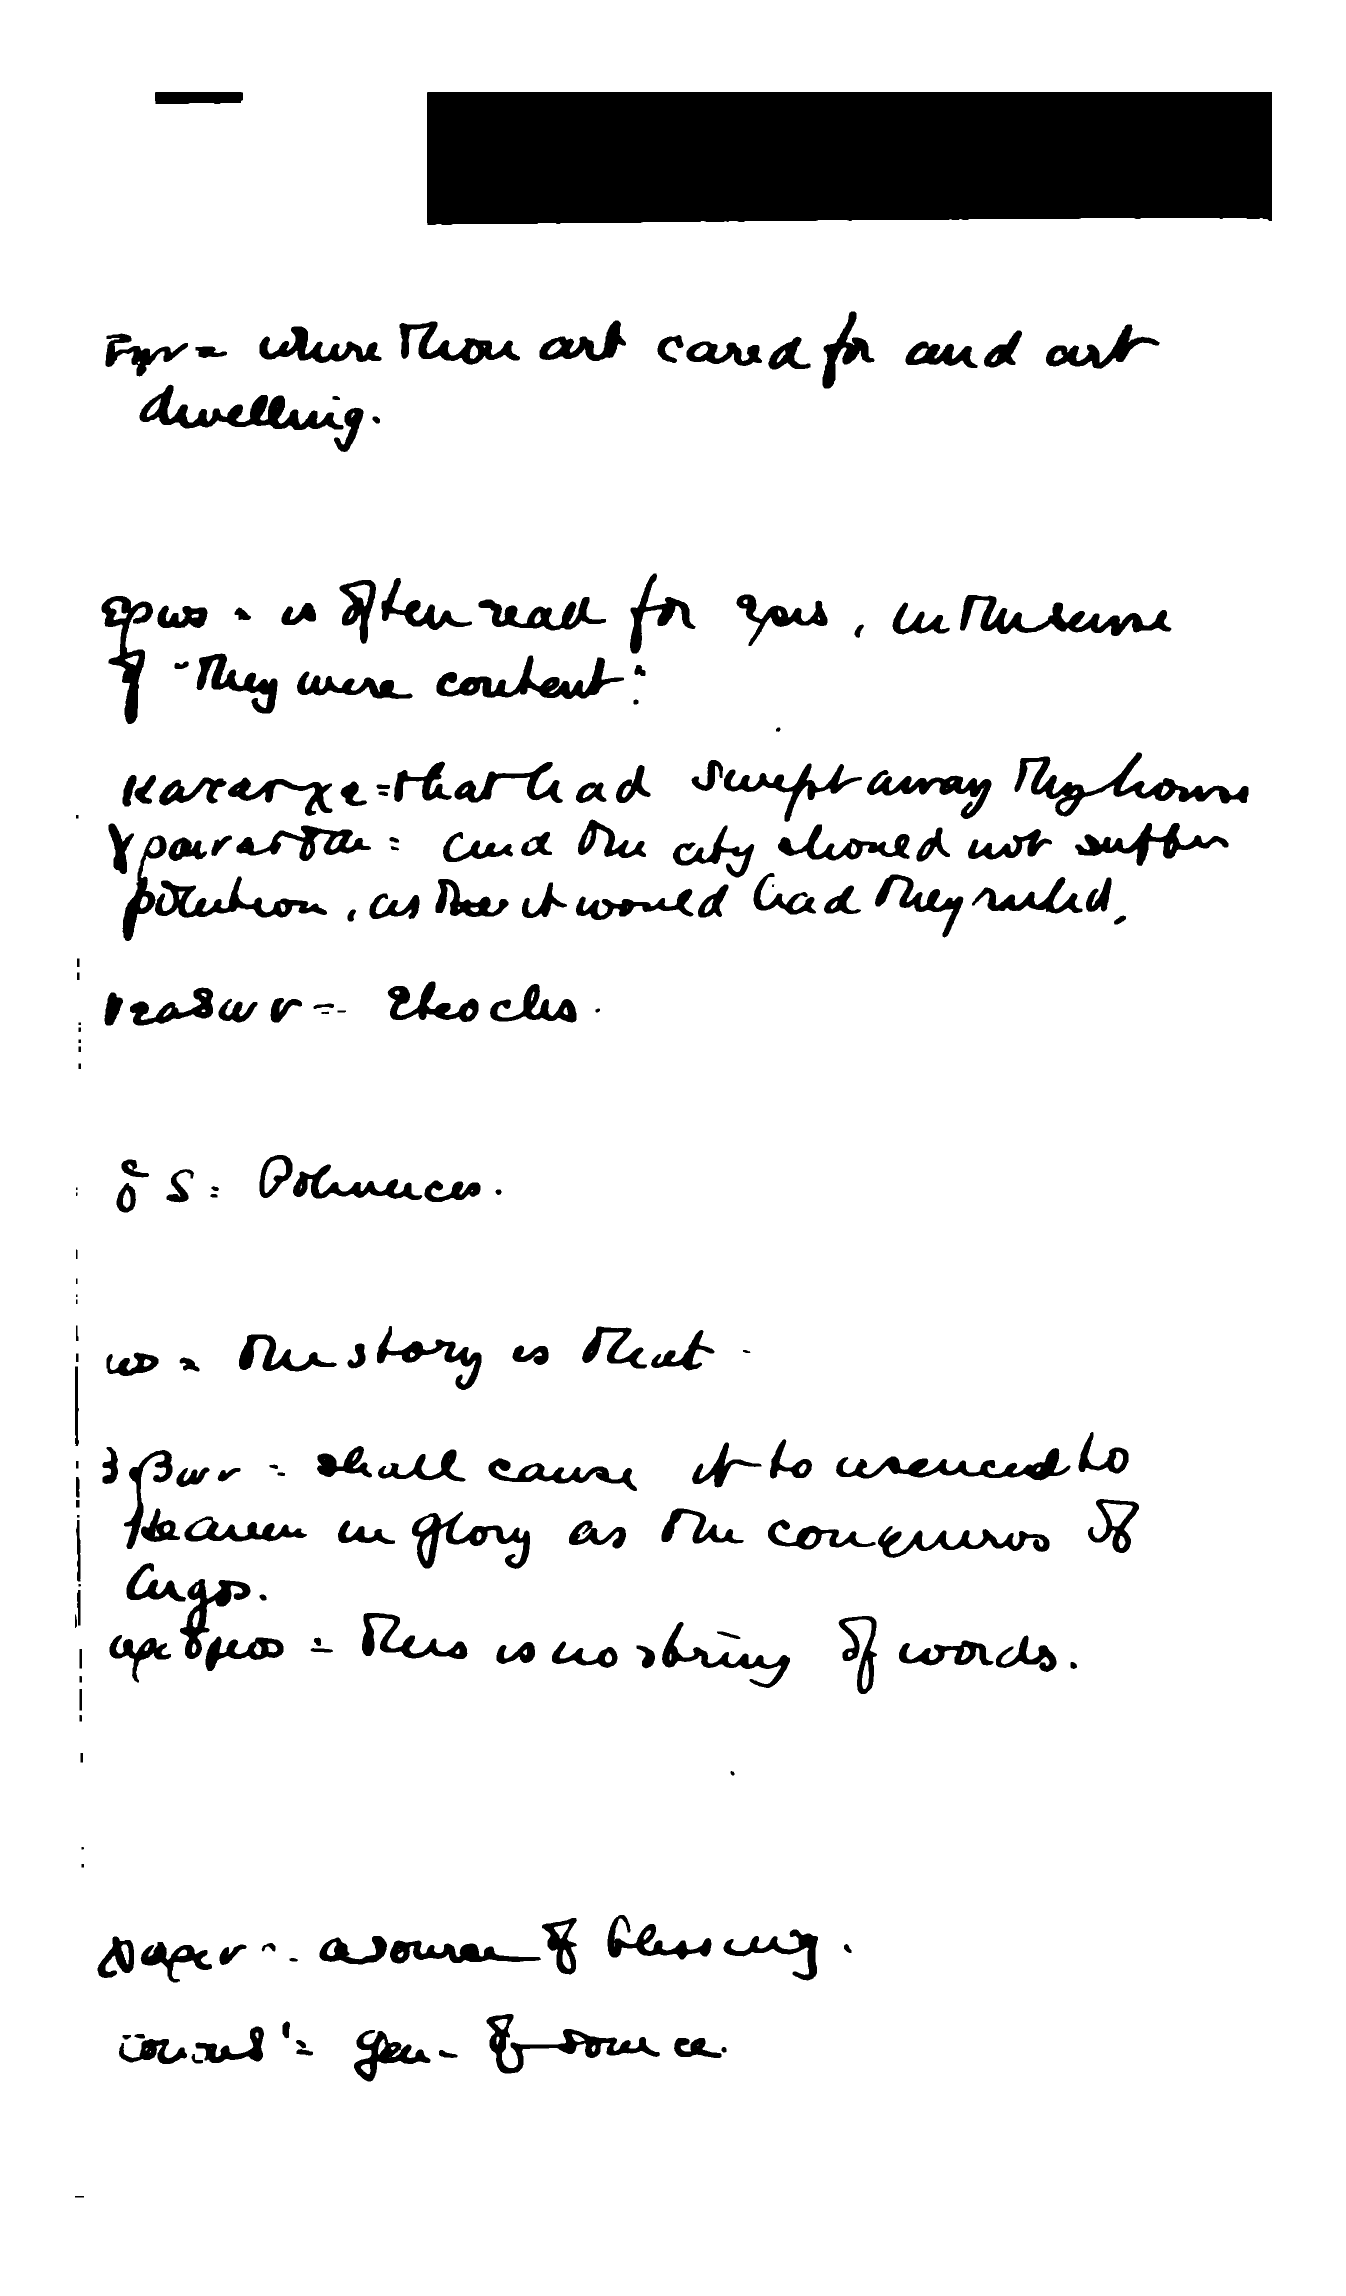 where thou art cared for and art
dwelling.
ερως = is often read for ερις, in the sense
of "they were content":
κατειχε = that had swept away thy house
χραινεσθαι = and the city should not suffer
pollution, as it would had they ruled.
νεαζων = Eteocles.
ὁ δ = Polineices.
ως = the story is that
βιβων = shall cause it to ascend to
Heaven in glory as the conquerors of
Argos.
αριθμος = this is no string of words.
a source of blessing.
gen. of source.